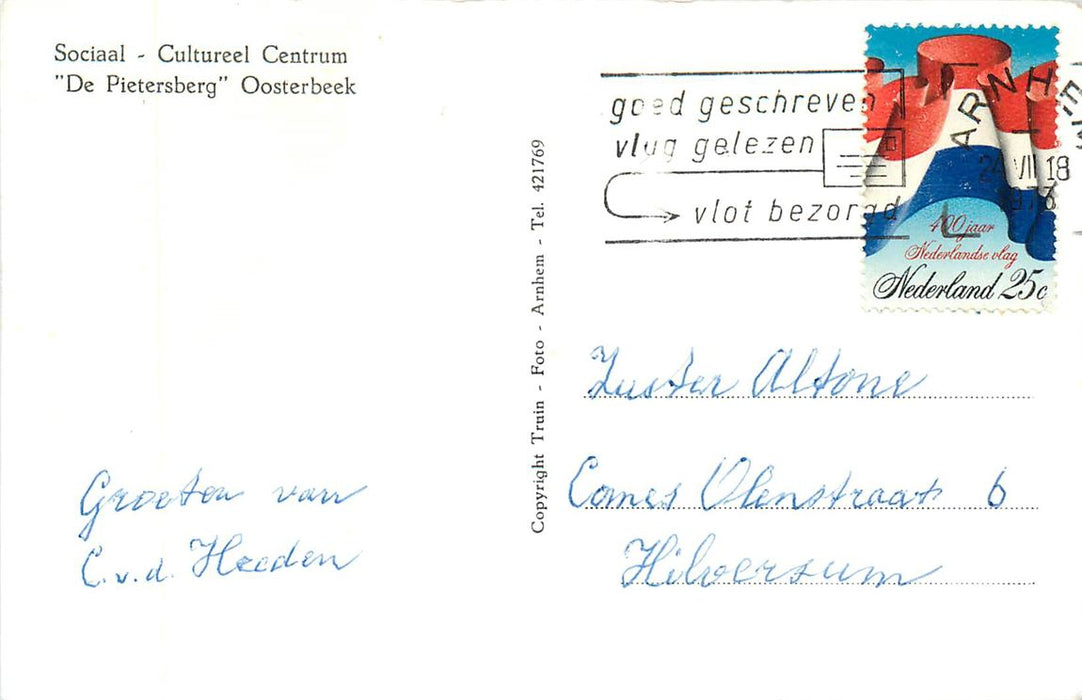 Sociaal - Cultureel Centrum
"De Pietersberg" Oosterbeek
goed geschreven
vlug gelezen
vlot bezorgd
ARNHEM
24 VII 18
1973
400 jaar
Nederlandse vlag
Nederland 25c
Copyright Truin - Foto - Arnhem - Tel. 421769
Zuster Altone
Comes Olenstraat 6
Hilversum
Groeten van
C.v.d. Heeden